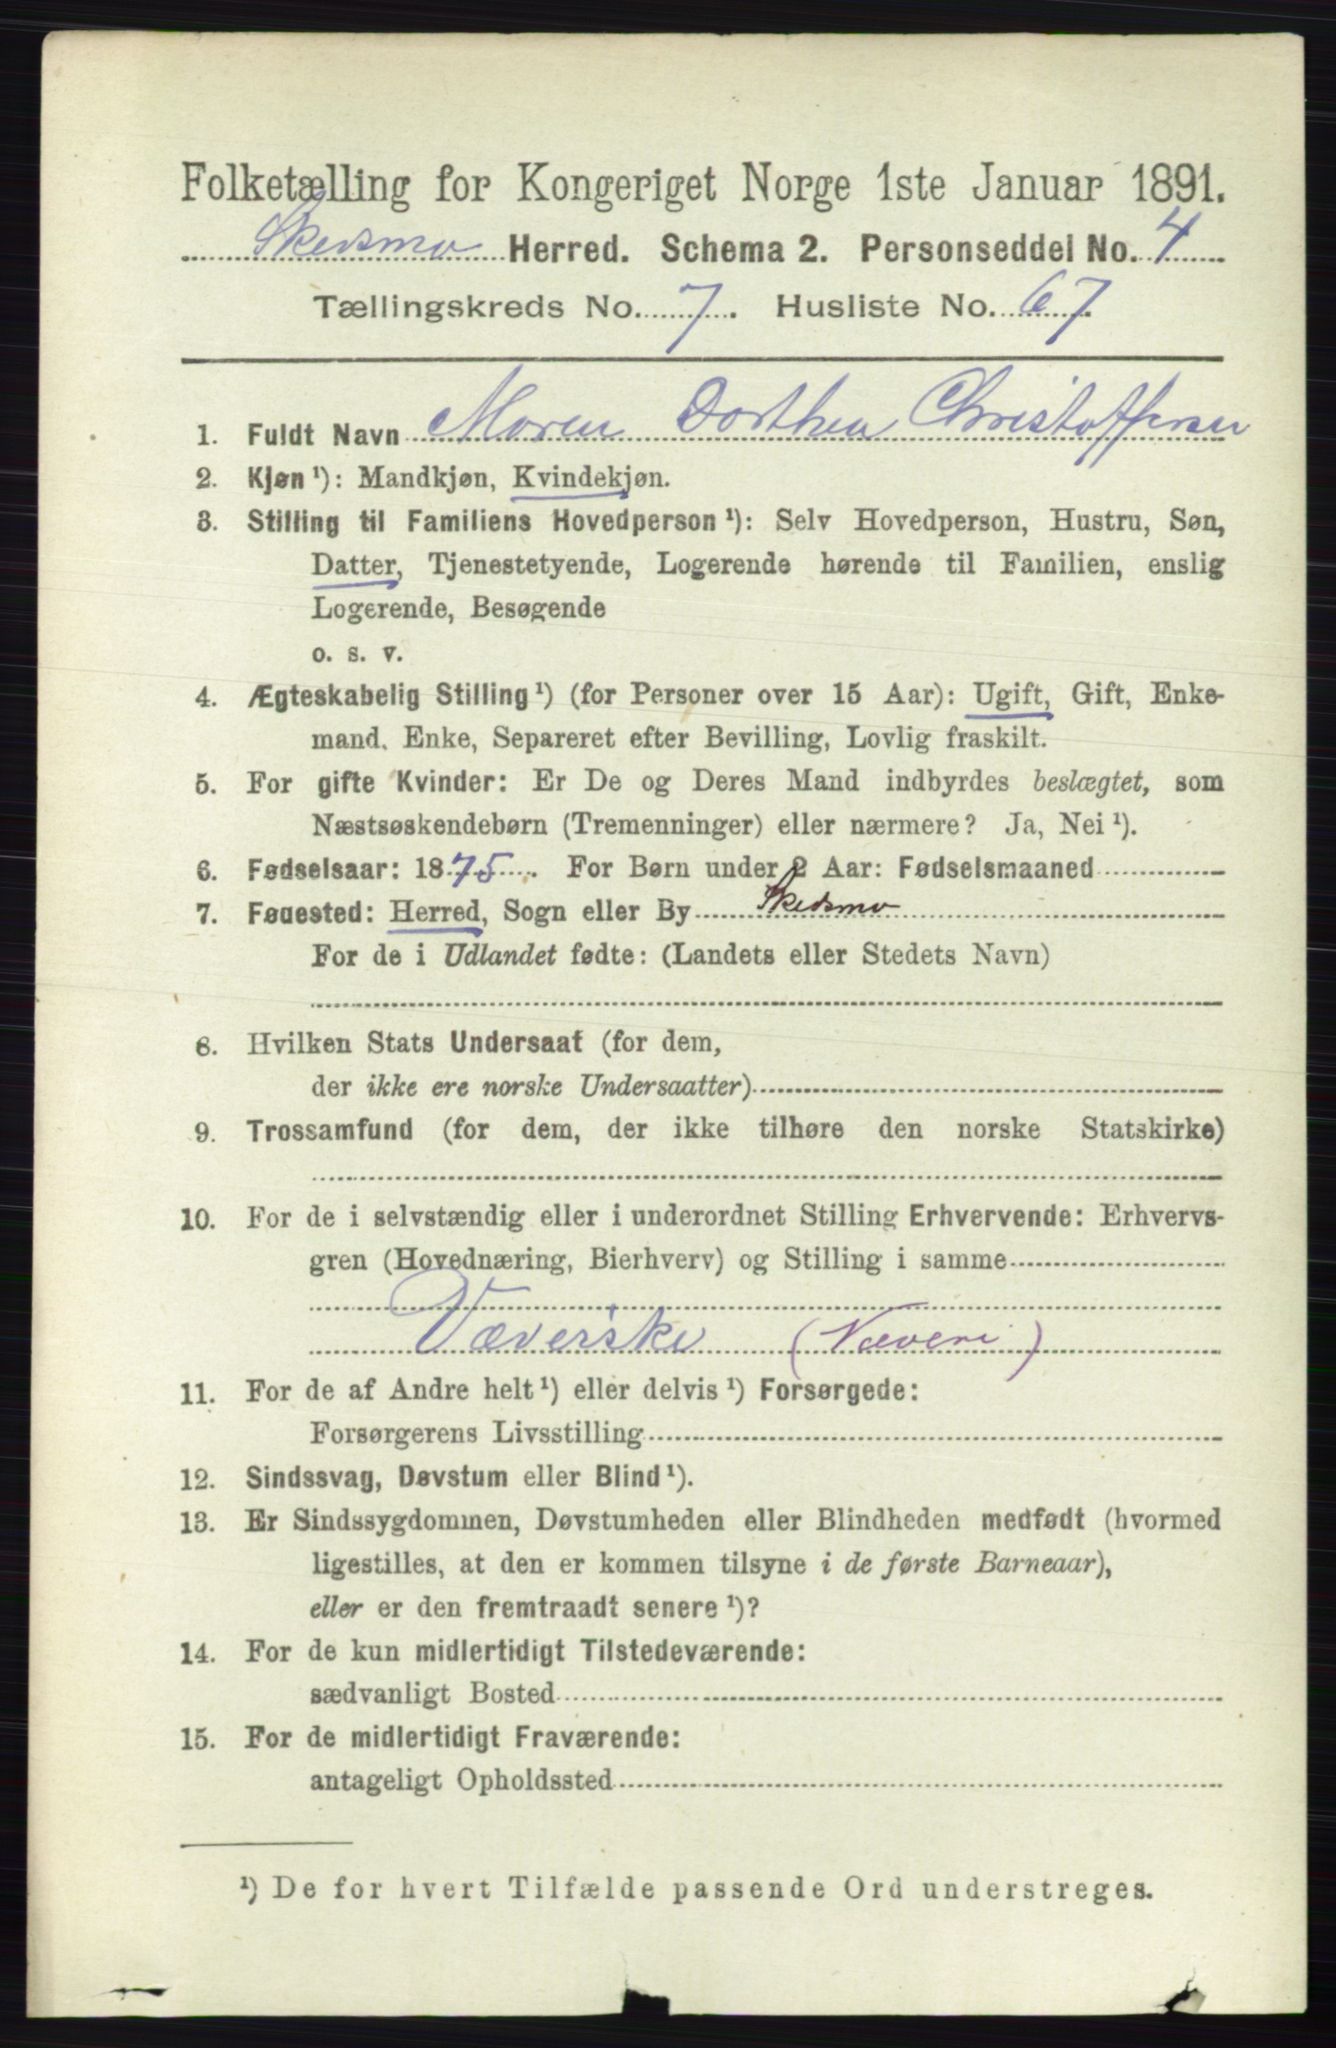 Folketælling for Kongeriget Norge 1ste Januar 1891.
Skedsmo Herred. Schema 2. Personseddel No. 4
Tællingskreds No. 7. Husliste No. 67.
1. Fuldt Navn Maren Dorthea Christoffersen
2. Kjøn ¹): Mandkjøn, Kvindekjøn.
3. Stilling til Familiens Hovedperson ¹): Selv Hovedperson, Hustru, Søn,
Datter, Tjenestetyende, Logerende hørende til Familien, enslig
Logerende, Besøgende
o. s. v.
4. Ægteskabelig Stilling ¹) (for Personer over 15 Aar): Ugift, Gift, Enke-
mand, Enke, Separeret efter Bevilling, Lovlig fraskilt.
5. For gifte Kvinder: Er De og Deres Mand indbyrdes beslægtet, som
Næstsøskendebørn (Tremenninger) eller nærmere? Ja, Nei ¹).
6. Fødselsaar: 1875. For Børn under 2 Aar: Fødselsmaaned
7. Fødested: Herred, Sogn eller By Skedsmo
For de i Udlandet fødte: (Landets eller Stedets Navn)
8. Hvilken Stats Undersaat (for dem,
der ikke ere norske Undersaatter)
9. Trossamfund (for dem, der ikke tilhøre den norske Statskirke)
10. For de i selvstændig eller i underordnet Stilling Erhvervende: Erhvervs-
gren (Hovednæring, Bierhverv) og Stilling i samme
Væverske (Væveri)
11. For de af Andre helt ¹) eller delvis ¹) Forsørgede:
Forsørgerens Livsstilling
12. Sindssvag, Døvstum eller Blind ¹).
13. Er Sindssygdommen, Døvstumheden eller Blindheden medfødt (hvormed
ligestilles, at den er kommen tilsyne i de første Barneaar),
eller er den fremtraadt senere ¹)?
14. For de kun midlertidigt Tilstedeværende:
sædvanligt Bosted
15. For de midlertidigt Fraværende:
antageligt Opholdssted
¹) De for hvert Tilfælde passende Ord understreges.